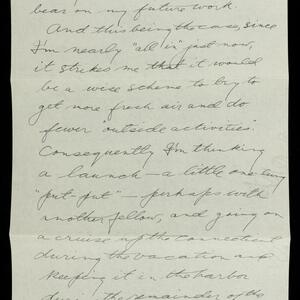 bear on my future work.
And this being the case, since
I'm nearly "all in" just now,
it strikes me that it would
be a wise scheme to try to
get more fresh air and do
fewer "outside activities".
Consequently I'm thinking
a launch – a little one-lung
"put-put" – perhaps with
another fellow, and going on
a cruise up the Connecticut
during the vacation and
keeping it in the harbor
the remainder of the